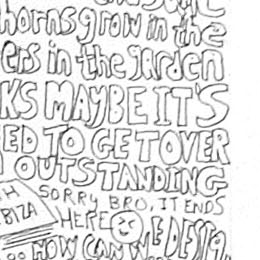 horns grow in the
ers in the garden
KS MAYBE IT'S
ED TO GET OVER
OUTSTANDING
SORRY BRO, IT ENDS
HERE
IBIZA
HOW CAN WE DESIG